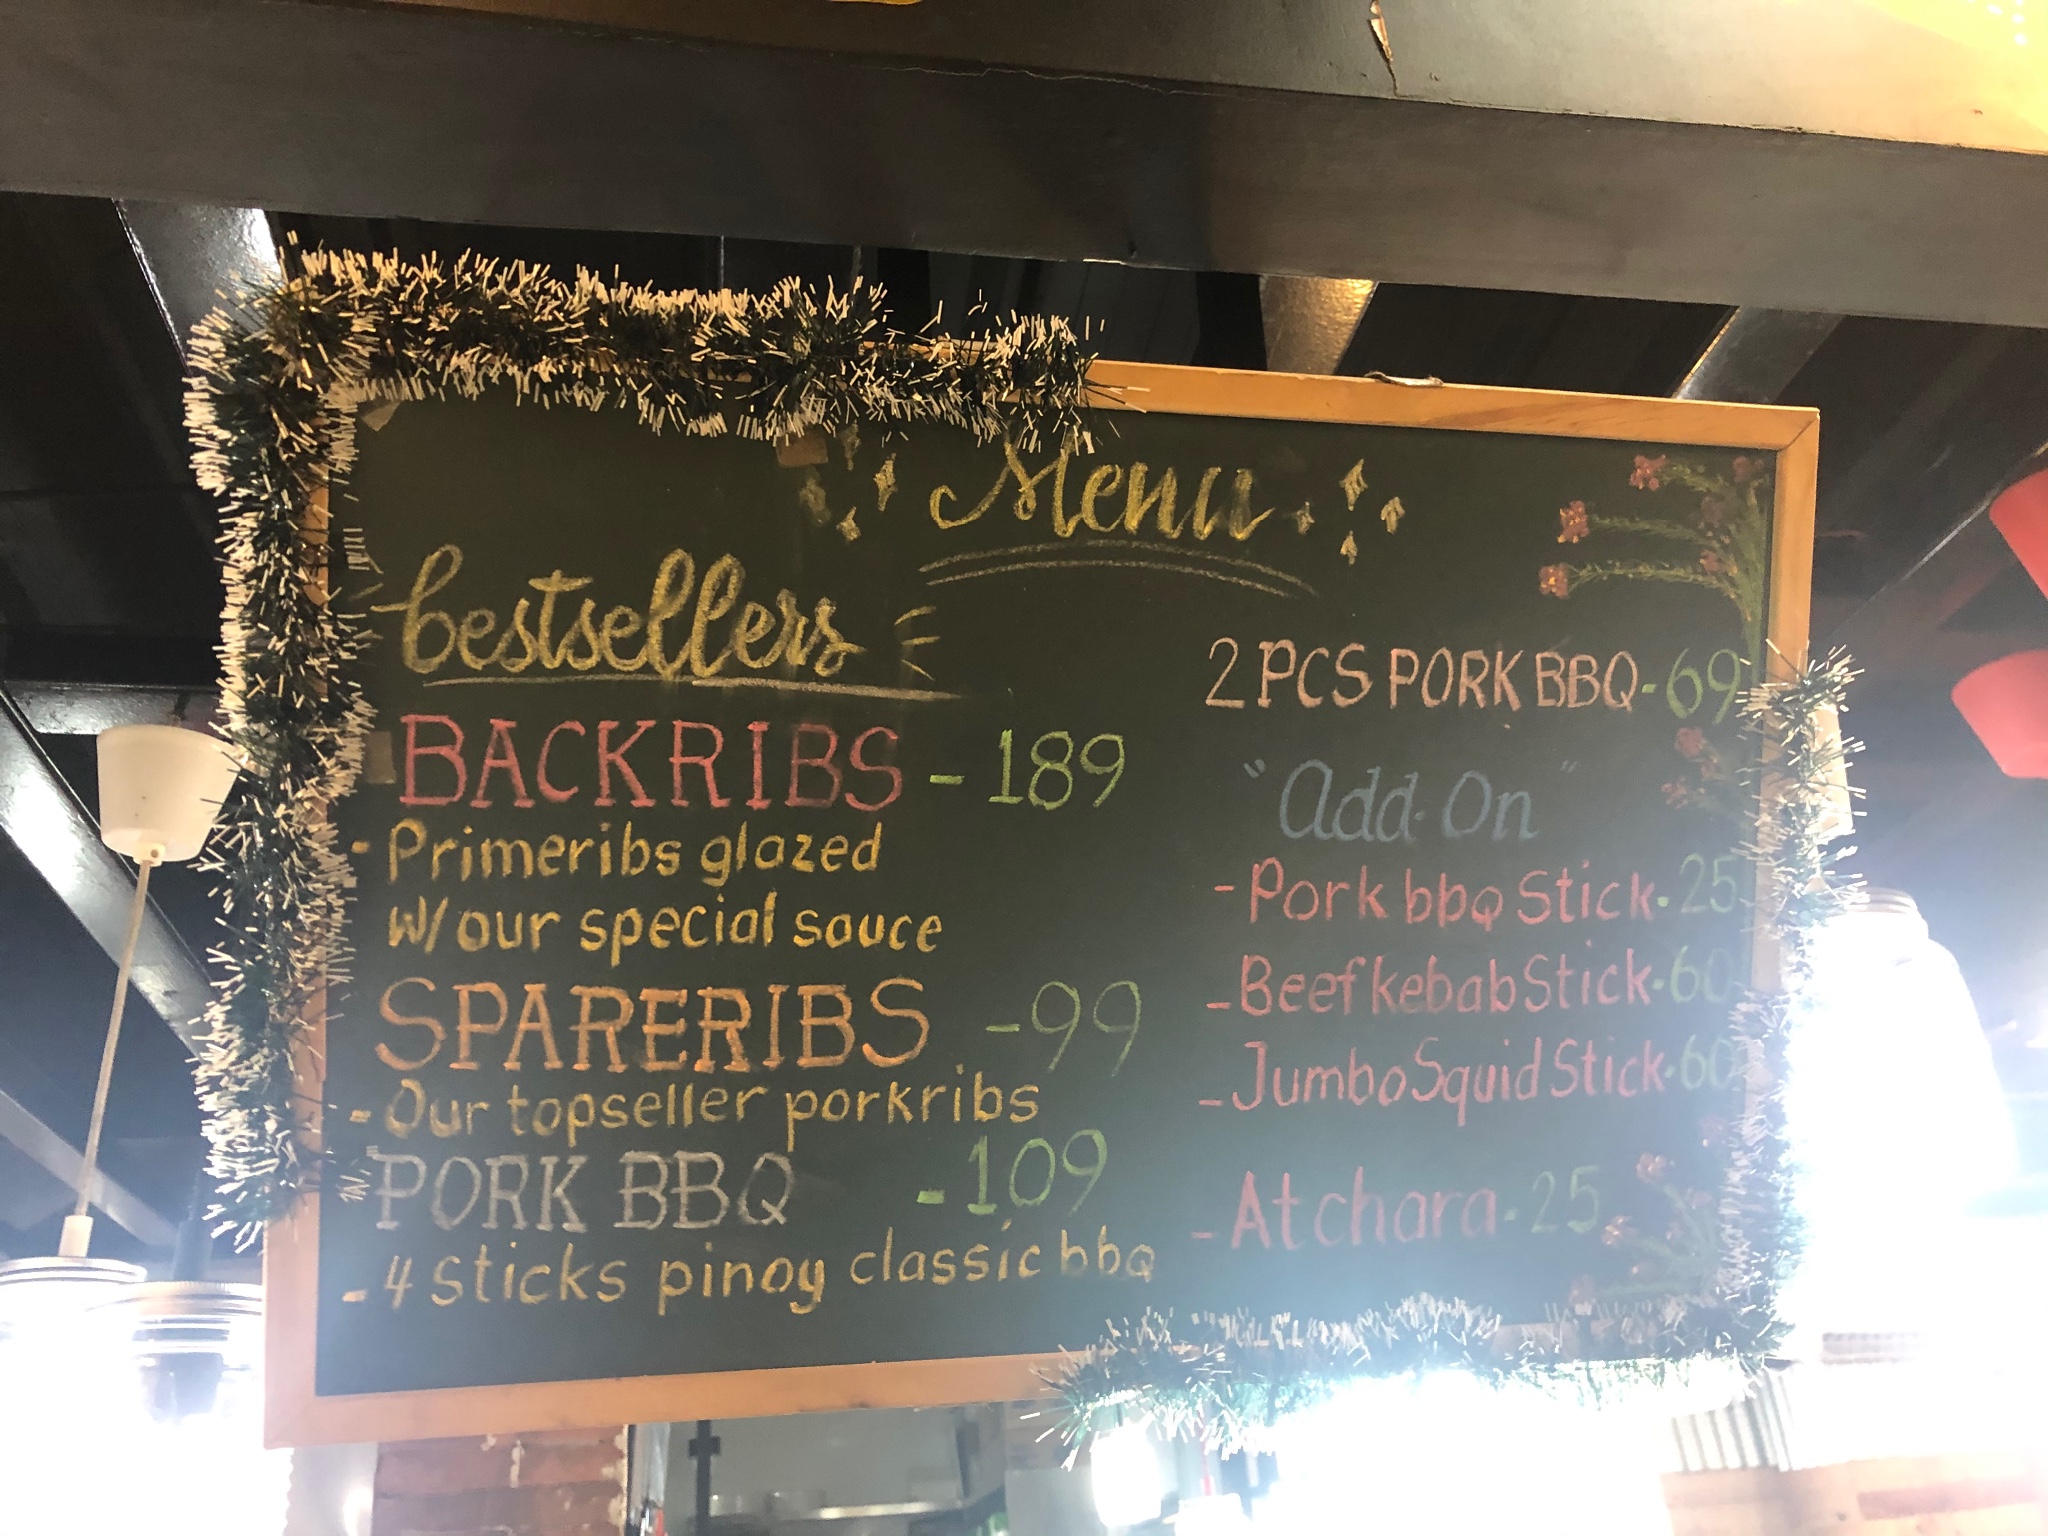 Menu
bestsellers
BACKRIBS - 189
- Primeribs glazed
w/our special sauce
SPARERIBS - 99
- Our topseller porkribs
PORK BBQ - 109
- 4 Sticks pinoy classic bbq
2 PCS PORK BBQ - 69
"Add-On"
- Pork bbq Stick - 25
- Beef kebab Stick - 60
- Jumbo Squid Stick - 60
- Atchara - 25